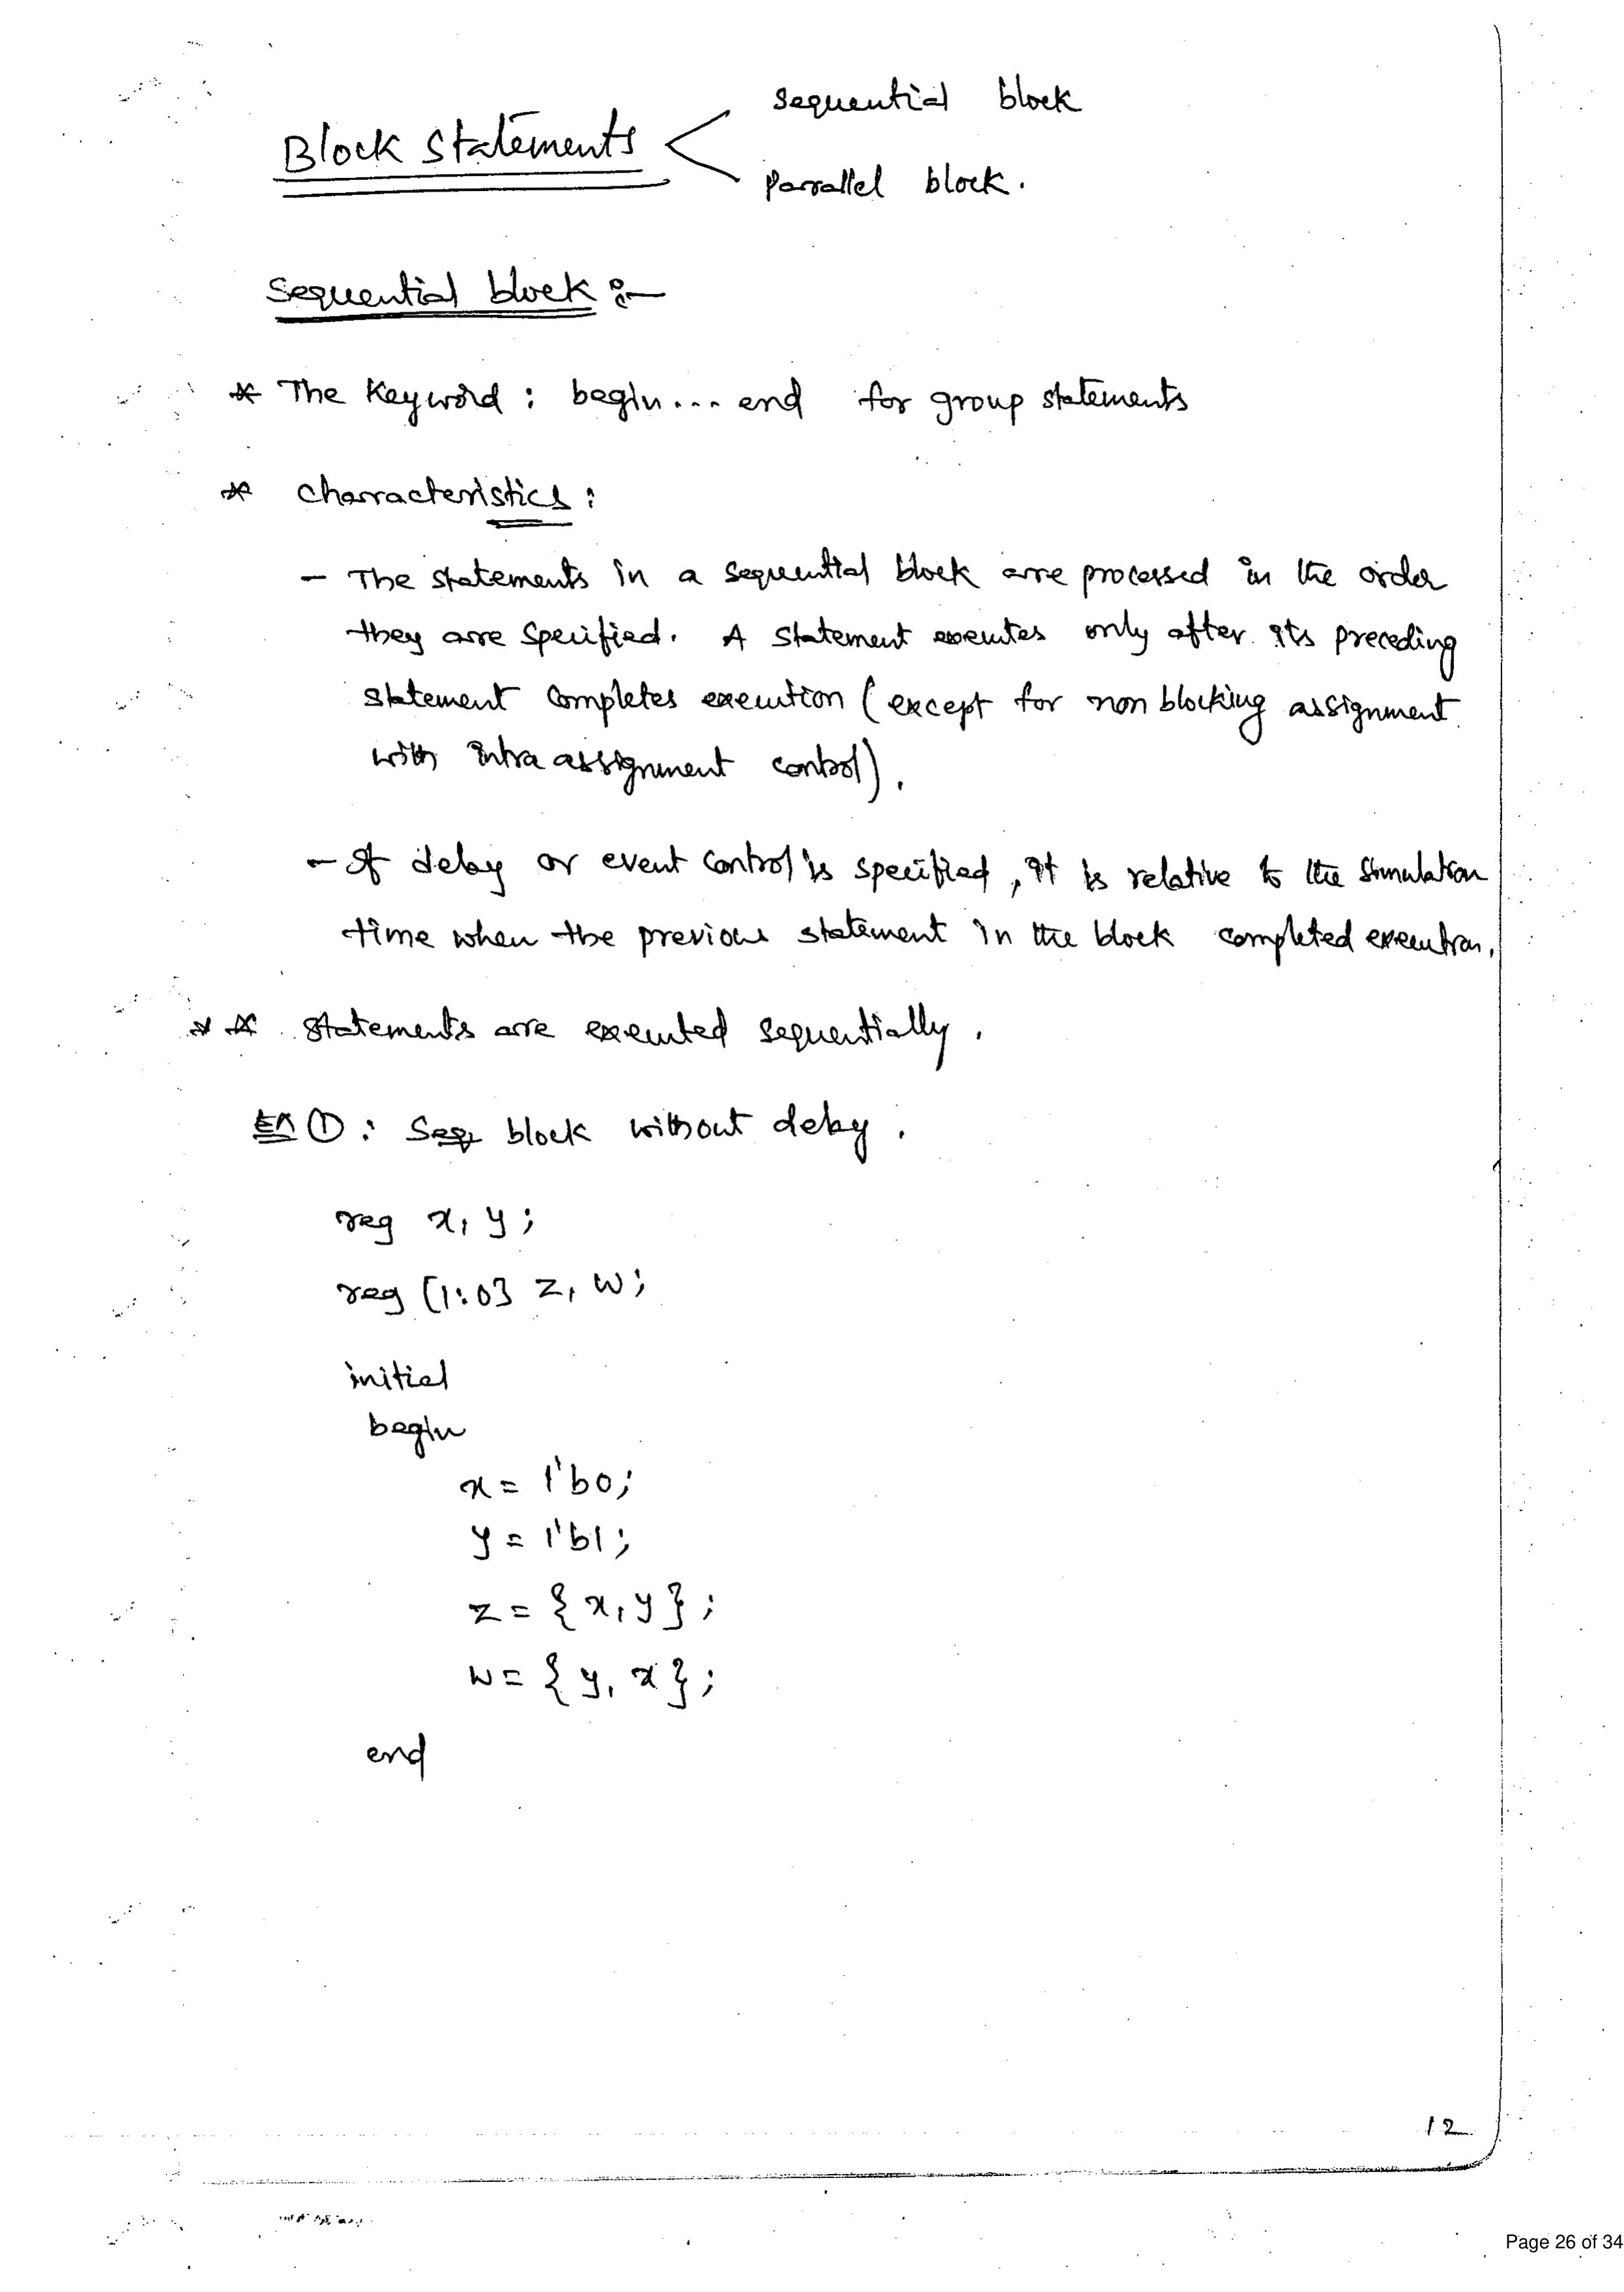 sequential block
Block Statements <
Parallel block.
Sequential block :-
* The Keyword : begin... end for group statements
* characteristics :
- The statements in a sequential block are processed in the order
they are specified. A statement executes only after its preceding
statement completes execution (except for non blocking assignment
with intra assignment control).
- If delay or event control is specified, it is relative to the simulation
time when the previous statement in the block completed execution.
** Statements are executed sequentially.
Ex ① : Seq block without delay.
reg x, y ;
reg [1:0] z, w ;
initial
begin
x = 1'b0;
y = 1'b1;
z = {x, y} ;
w = {y, x} ;
end
12
Page 26 of 34